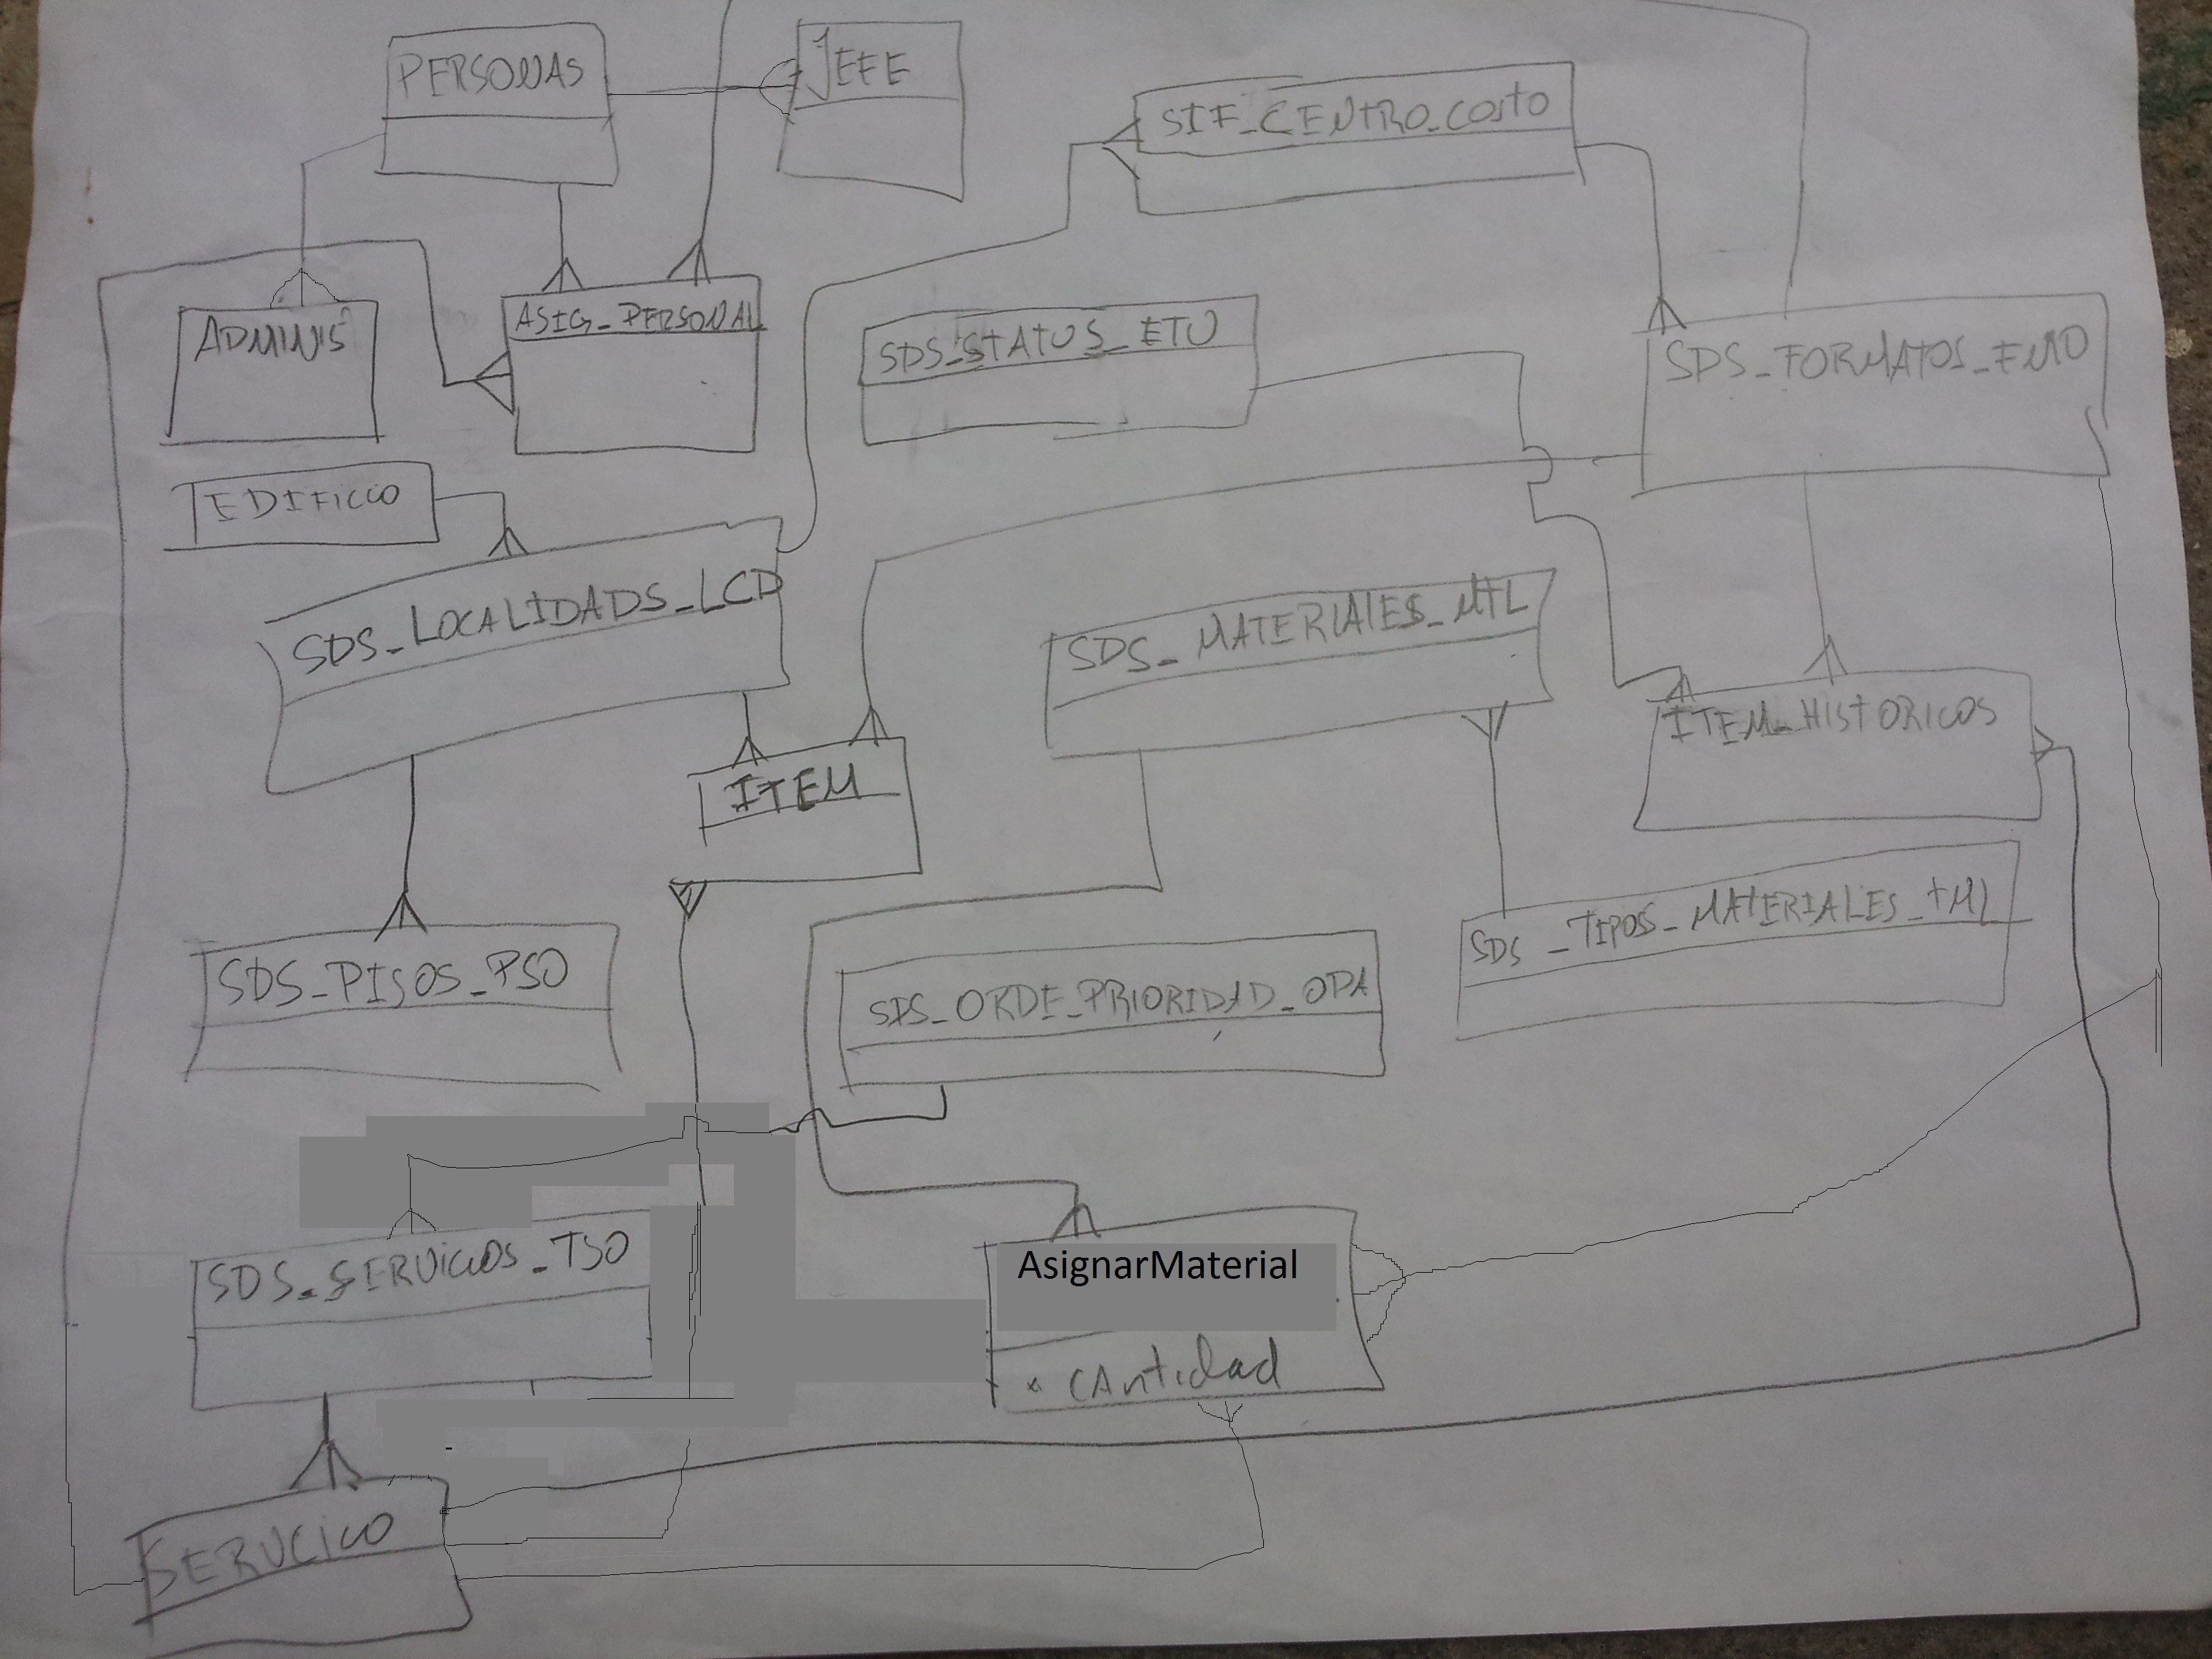 PERSONAS
JEFE
SIF_CENTRO_COSTO
ADMINIS
ASIG_PERSONAL
SDS_STATUS_ETU
SDS_FORMATOS_FMO
EDIFICIO
SDS_LOCALIDADS_LCD
SDS_MATERIALES_MTL
ITEM_HISTORICOS
ITEM
SDS_TIPOS_MATERIALES_TML
SDS_PISOS_PSO
SDS_ORDE_PRIORIDAD_OPA
SDS_SERVICIOS_TSO
AsignarMaterial
* CAntidad
SERVICIO